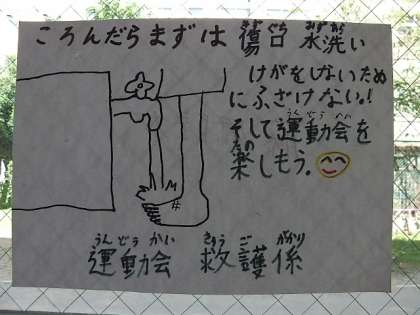 ころんだらまずは傷口水洗い
けがをしないため
にふざけない!
そして運動会を
楽しもう。
運動会 救護係